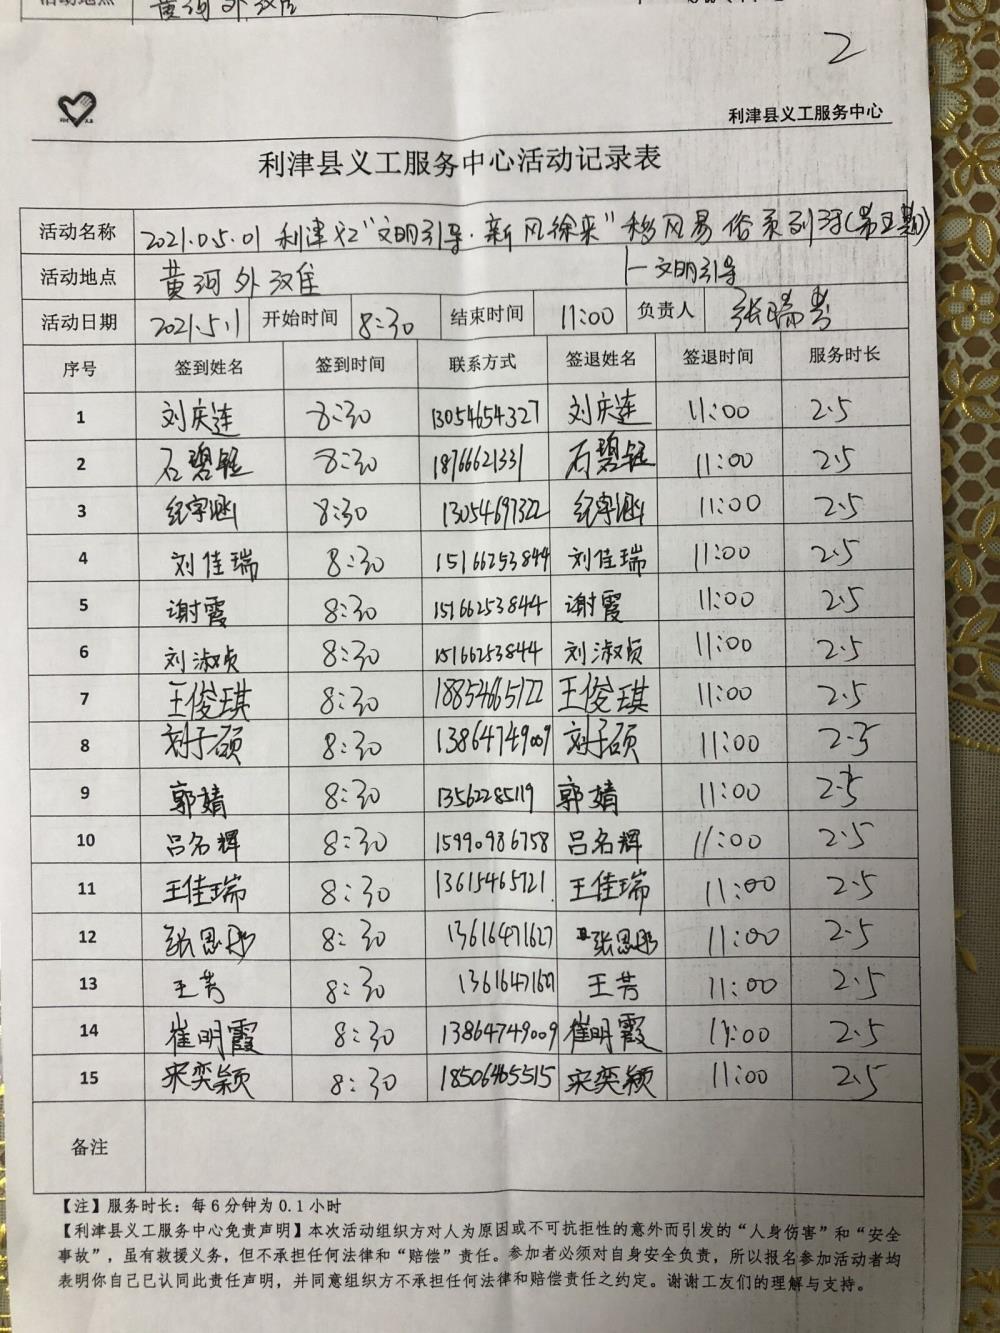 活动地点 黄河外滩
2
利津县义工服务中心
利津县义工服务中心活动记录表
活动名称 2021.05.01 利津义工"文明引导·新风徐来"移风易俗系列活动(第五期)
活动地点 黄河外滩 —文明引导
活动日期 2021.5.1 开始时间 8:30 结束时间 11:00 负责人 张瑞
序号 签到姓名 签到时间 联系方式 签退姓名 签退时间 服务时长
1 刘庆连 8:30 13054654327 刘庆连 11:00 2.5
2 石碧钰 8:30 18766621331 石碧钰 11:00 2.5
3 纪宇涵 8:30 13054697322 纪宇涵 11:00 2.5
4 刘佳瑞 8:30 15166253844 刘佳瑞 11:00 2.5
5 谢霞 8:30 15166253844 谢霞 11:00 2.5
6 刘淑贞 8:30 15166253844 刘淑贞 11:00 2.5
7 王俊琪 8:30 18854665122 王俊琪 11:00 2.5
8 刘子硕 8:30 13864749009 刘子硕 11:00 2.5
9 郭婧 8:30 13562285119 郭婧 11:00 2.5
10 吕名辉 8:30 15990986758 吕名辉 11:00 2.5
11 王佳瑞 8:30 13615465721 王佳瑞 11:00 2.5
12 张思彤 8:30 13616471627 张思彤 11:00 2.5
13 王芳 8:30 王芳 11:00 2.5
14 崔明霞 8:30 13864749009 崔明霞 11:00 2.5
15 宋奕颖 8:30 18506465515 宋奕颖 11:00 2.5
备注
【注】服务时长：每6分钟为0.1小时
【利津县义工服务中心免责声明】本次活动组织方对人为原因或不可抗拒性的意外而引发的“人身伤害”和“安全
事故”，虽有救援义务，但不承担任何法律和“赔偿”责任。参加者必须对自身安全负责，所以报名参加活动者均
表明你自己已认同此责任声明，并同意组织方不承担任何法律和赔偿责任之约定。谢谢工友们的理解与支持。